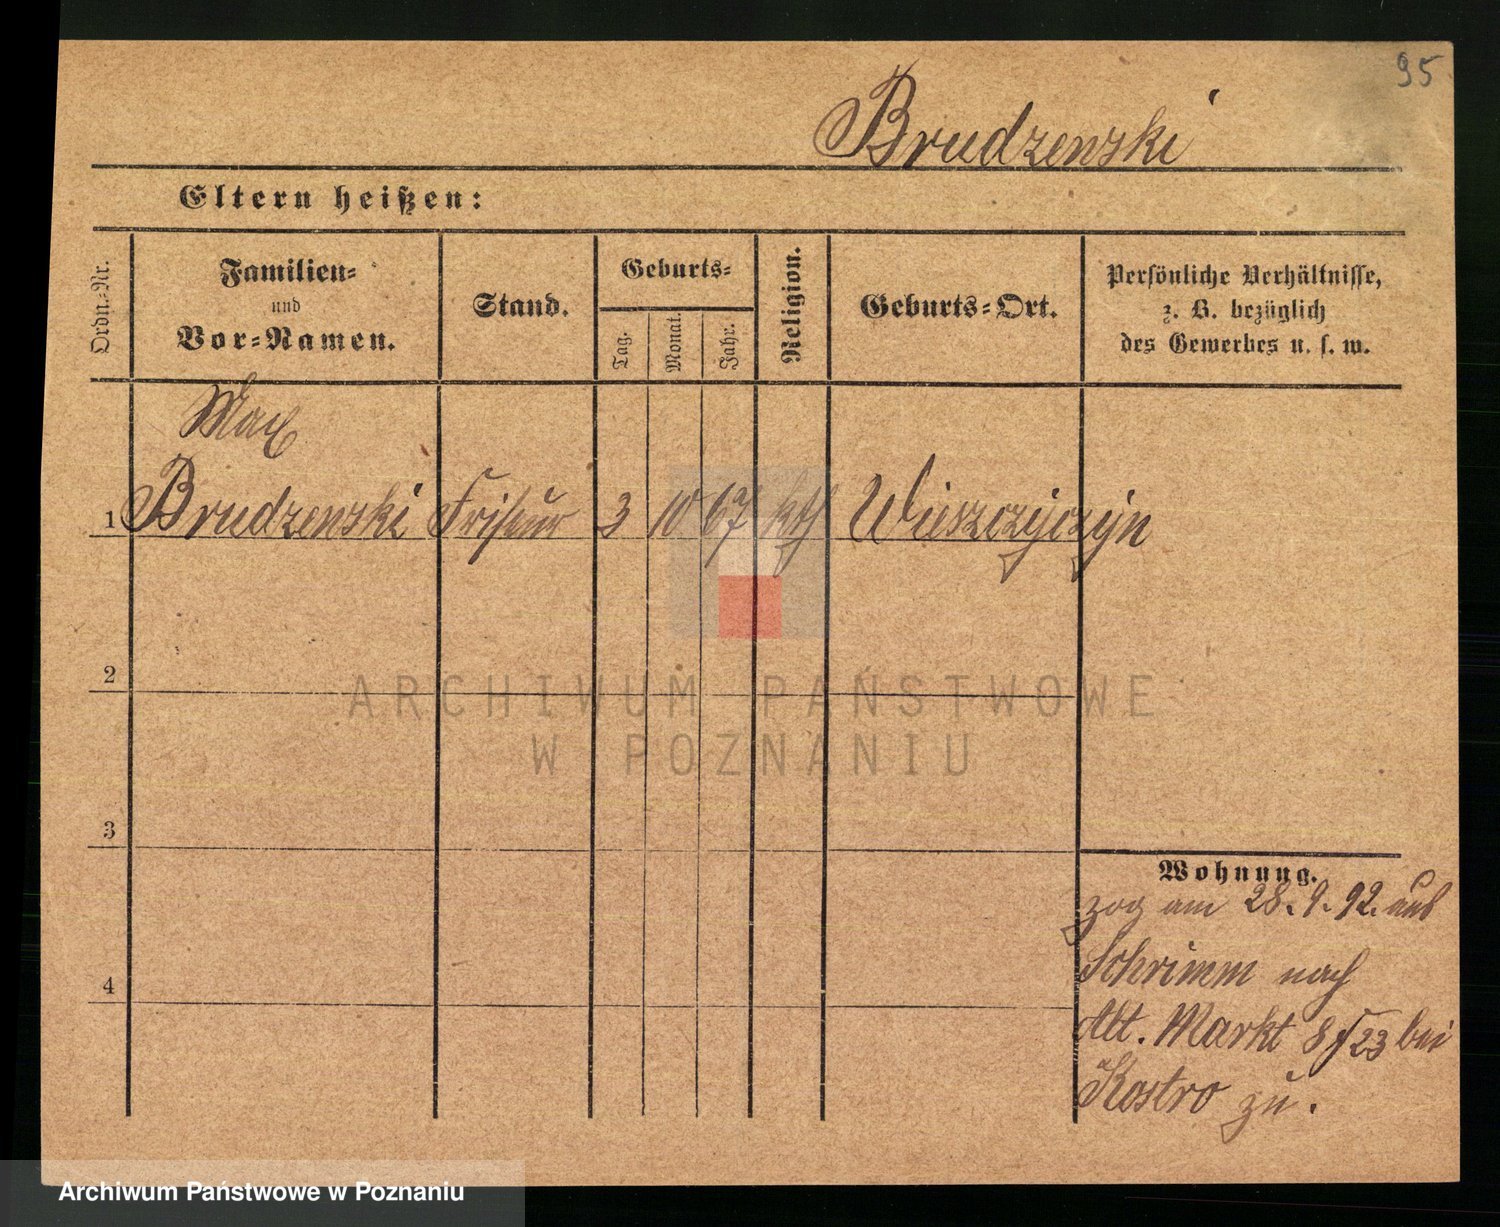 95
Brudzenski
Eltern heißen:
Ordn.-Nr.
Familien-
und
Vor-Namen.
Stand.
Geburts-
Tag.
Monat.
Jahr.
Religion.
Geburts-Ort.
Persönliche Verhältnisse,
z. B. bezüglich
des Gewerbes u. s. w.
Max
1 Brudzenski Friseur 3 10 67 kth
2
3
4
Wohnung.
zog am 28.9.92. aus
Schrimm nach
Alt. Markt 8/23 bei
Kostro zu.
ARCHIWUM PAŃSTWOWE
W POZNANIU
Archiwum Państwowe w Poznaniu